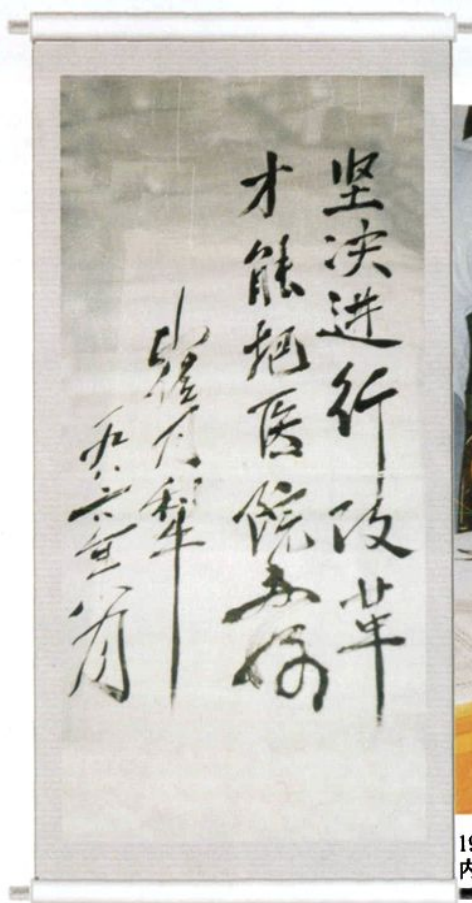 坚决进行改革
才能把医院办好
崔月犁
一九八六年八月
19
内